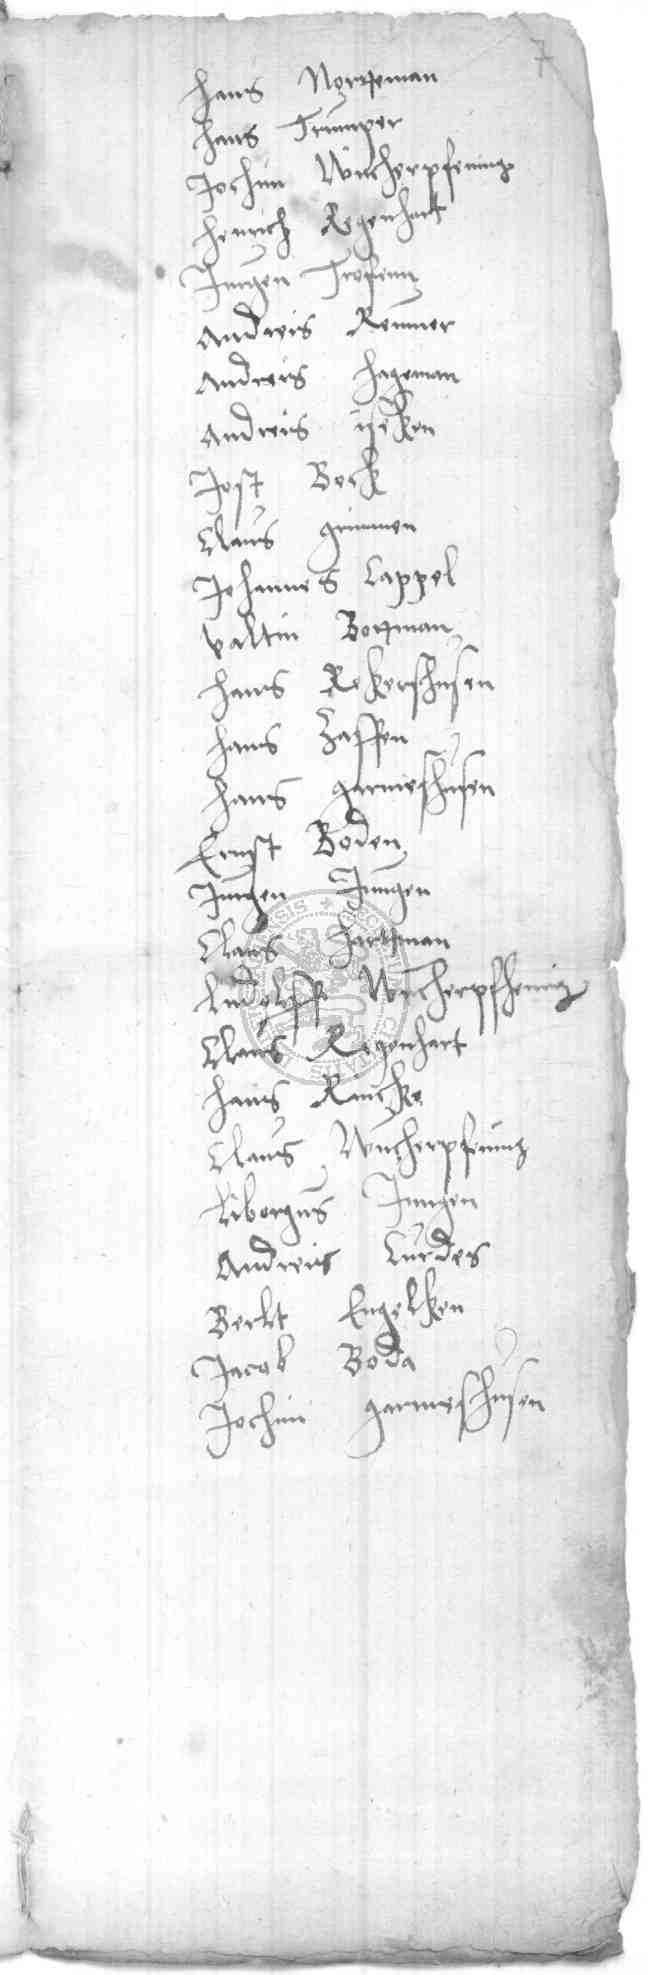 7
Hans Nortman
Hans Trumper
Jochim Wucherpfennig
Henrich Regenhart
Jurgen
Andreis Remmer
Andreis Hageman
Andreis
Jost Bock
Claus Grimmen
Johannes Cappel
Valtin Bortman
Hans Rekershusen
Hans Zaffen
Hans Garmeshusen
Ernst Boden
Jurgen Jungen
Claus Hartman
Ludolff Wucherpfhenig
Claus Regenhart
Hans Rincke
Claus Wucherpfenig
Liborgus Jungen
Andreis Curdes
Berlt Engelken
Jacob Boda
Jochim Garmeshusen